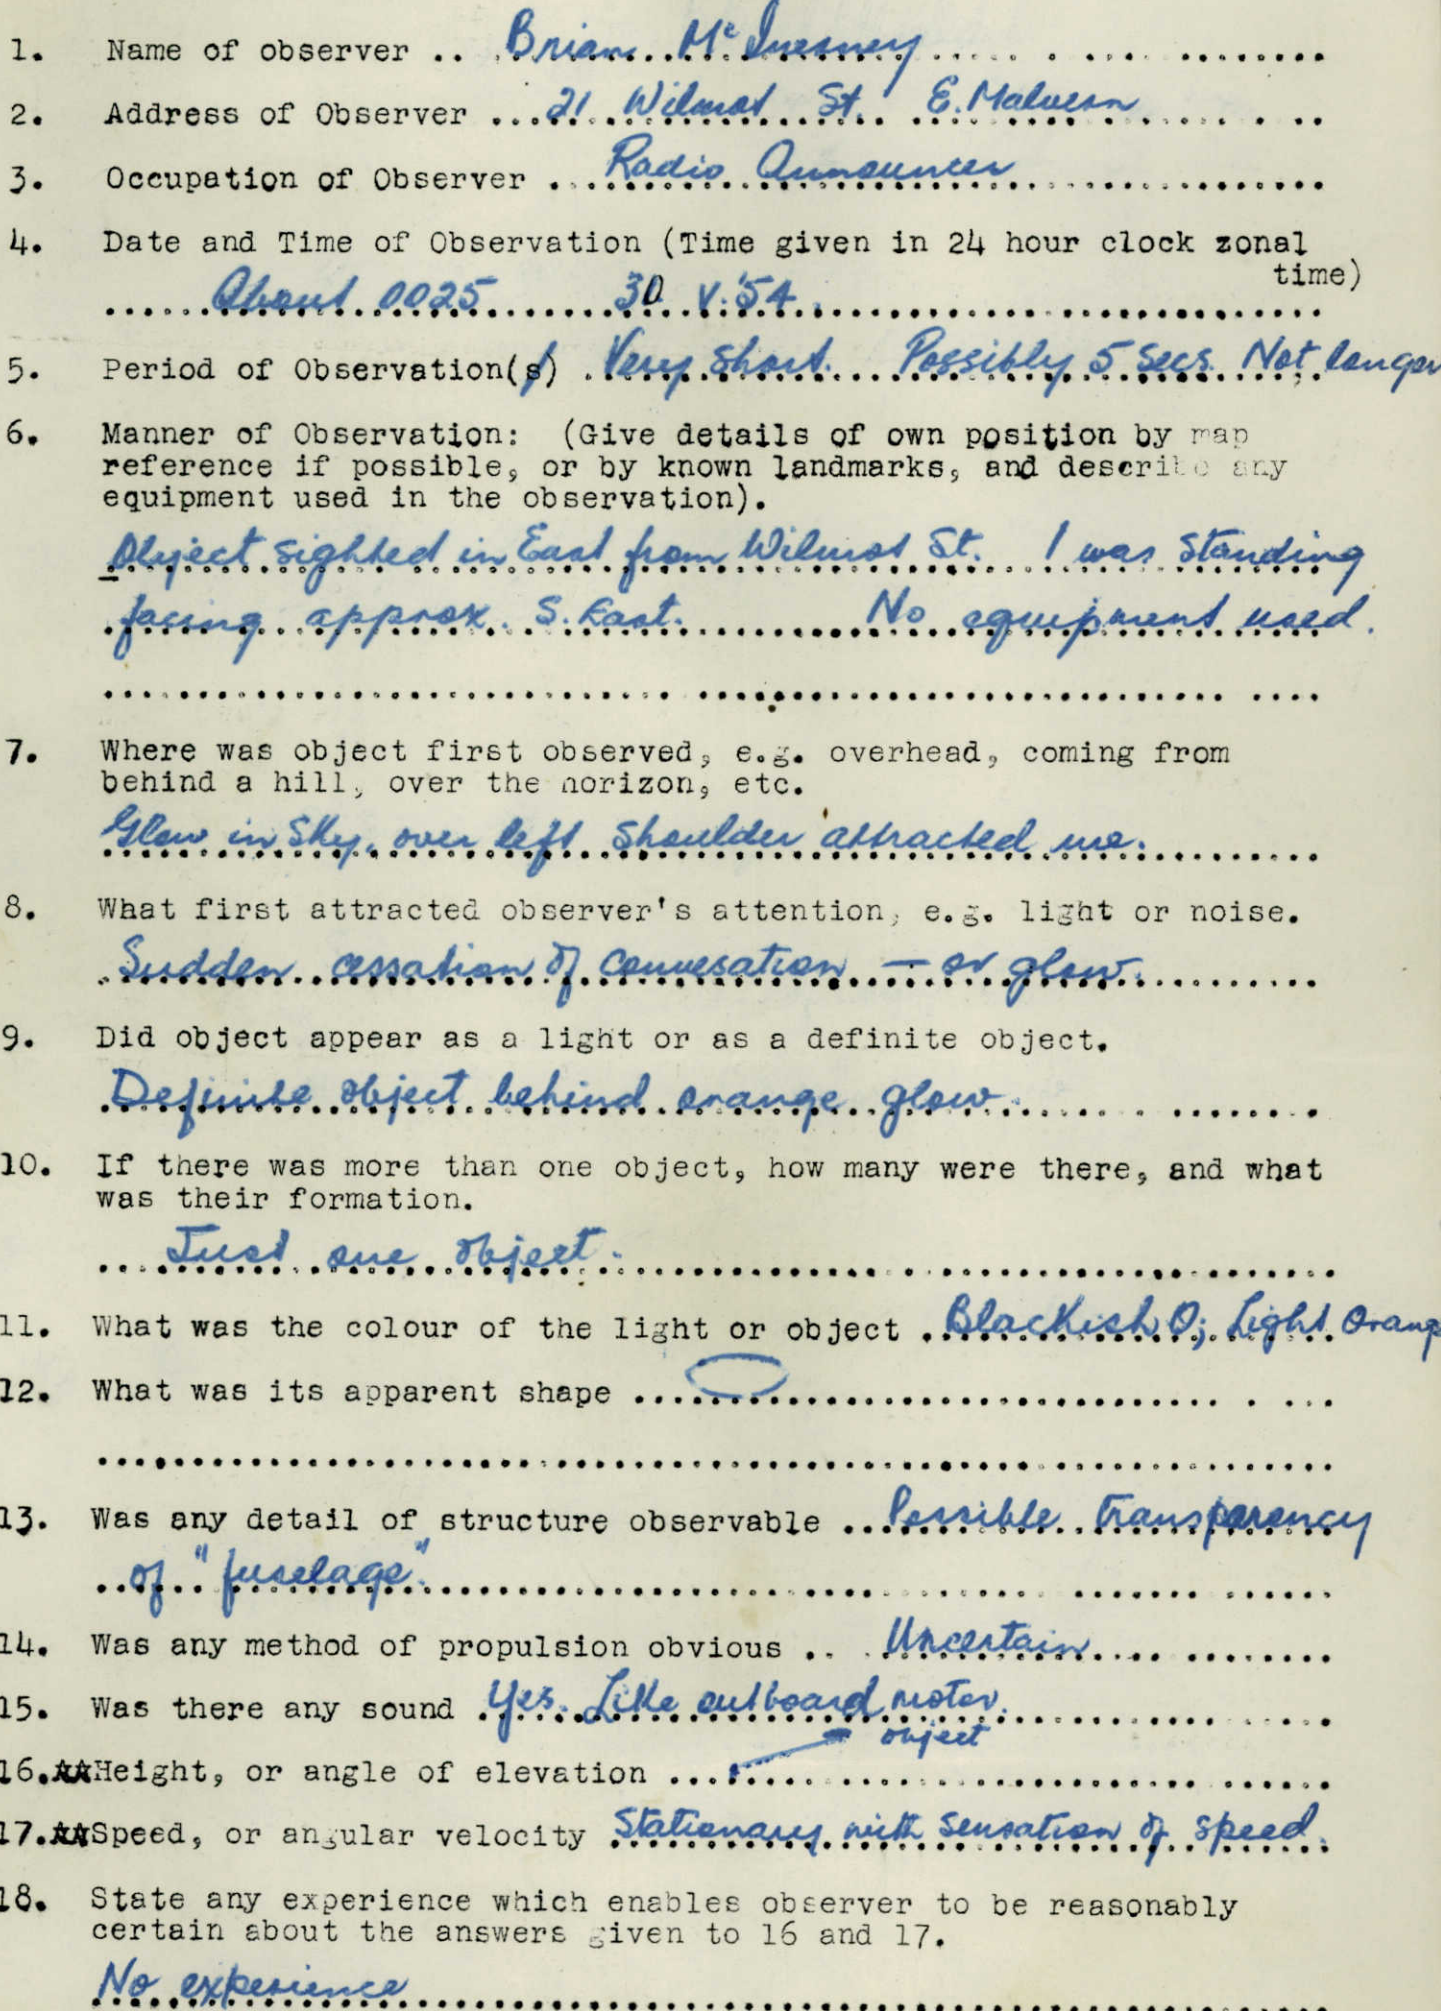 1. Name of observer .. Brian Mc Inerney
2. Address of Observer ... 21 Wilmot St. E. Malvern
3. Occupation of Observer ... Radio Announcer
4. Date and Time of Observation (Time given in 24 hour clock zonal
time)
About 0025 30 V.'54.
5. Period of Observation(s) . Very short. Possibly 5 secs. Not longer
6. Manner of Observation: (Give details of own position by map
reference if possible, or by known landmarks, and describe any
equipment used in the observation).
Object sighted in East from Wilmot St. I was standing
facing approx. S. East. No equipment used.
7. Where was object first observed, e.g. overhead, coming from
behind a hill, over the horizon, etc.
Glow in Sky, over left shoulder attracted me.
8. What first attracted observer's attention, e.g. light or noise.
Sudden cessation of conversation — or glow.
9. Did object appear as a light or as a definite object.
Definite object behind orange glow.
10. If there was more than one object, how many were there, and what
was their formation.
Just one object.
11. What was the colour of the light or object . Blackish O; Light Orange
12. What was its apparent shape ...
13. Was any detail of structure observable ... Possible transparency
of "fuselage".
14. Was any method of propulsion obvious .. Uncertain
15. Was there any sound . Yes. Like outboard motor.
object
16. Height, or angle of elevation ...
17. Speed, or angular velocity Stationary with sensation of speed.
18. State any experience which enables observer to be reasonably
certain about the answers given to 16 and 17.
No experience